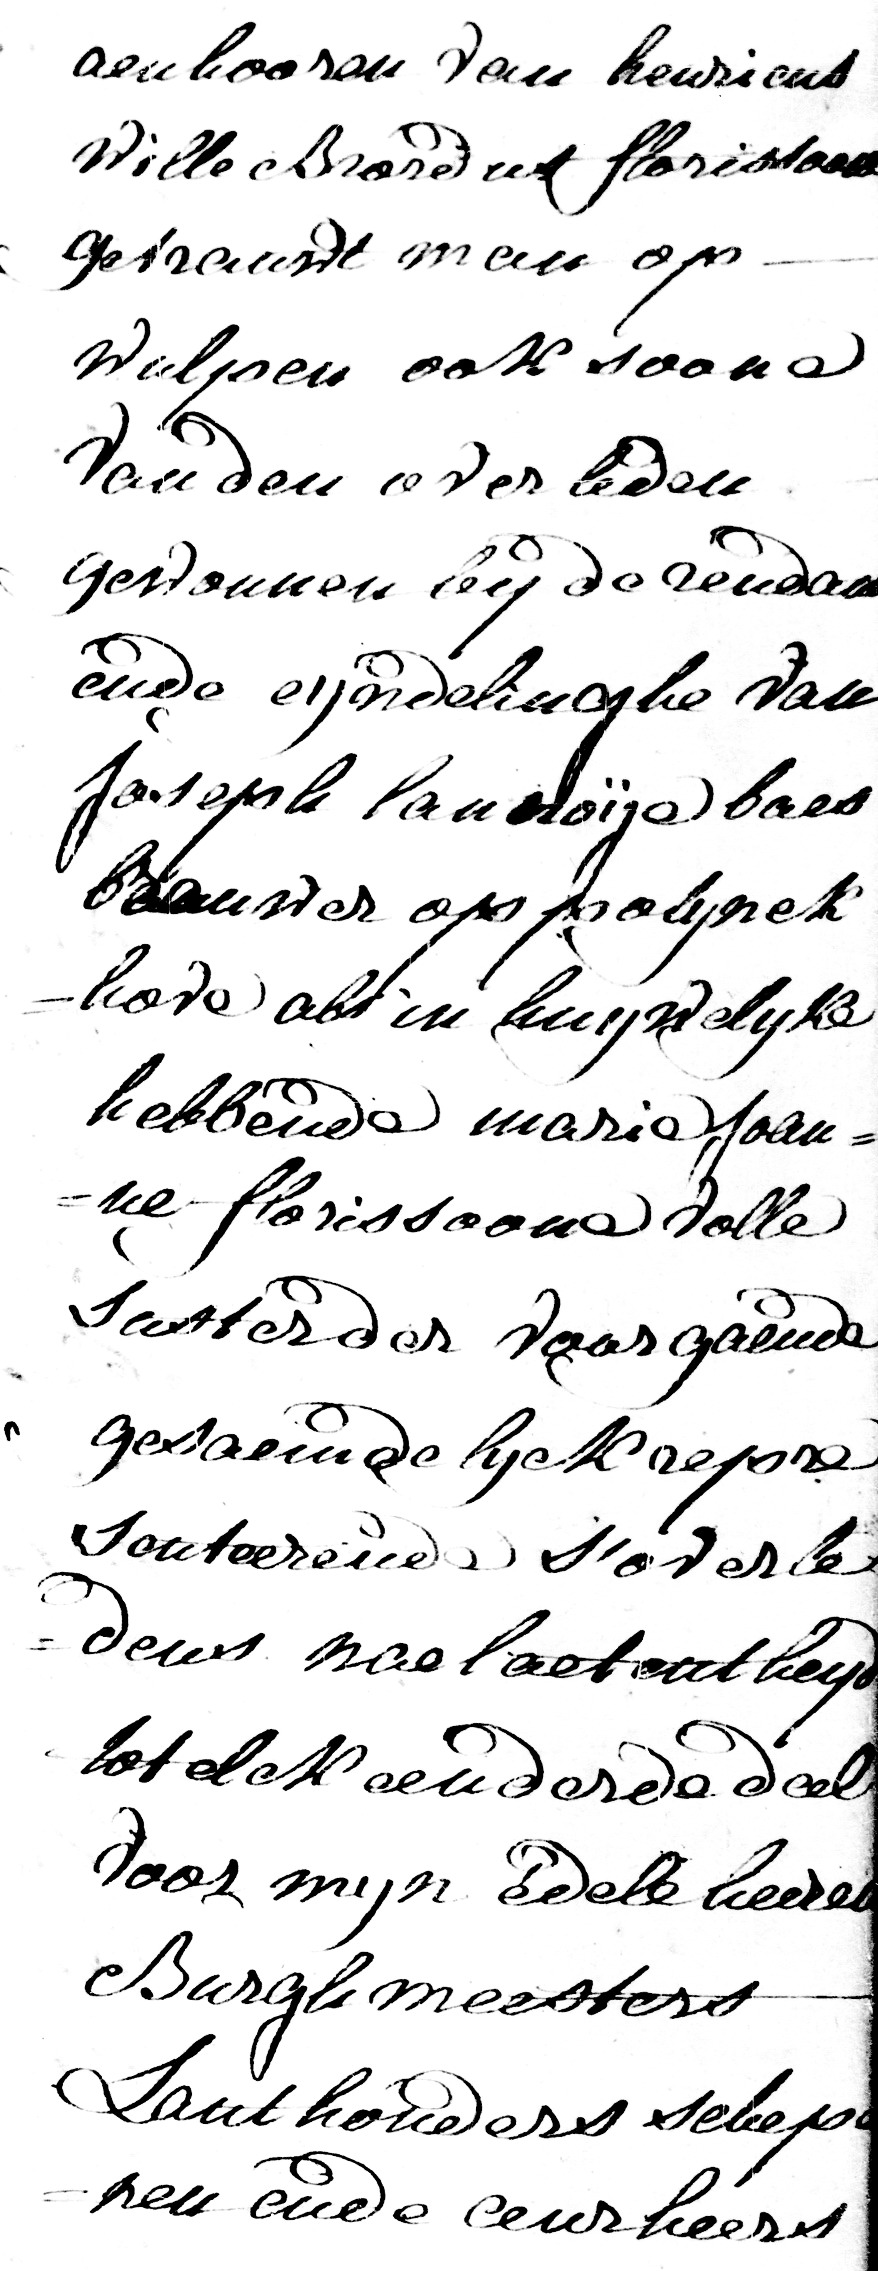 aenhooren van henricus
Willebrordus florissoone
getrauwt man op
Wulpen ook soone
van den overleden
gewonnen bij de rendan
ende eijndelinghe van
Joseph lannoije baes
brauwer op polynck
-hove als in huywelyke
hebbende marie Joan=
=ne florissoone volle
suster der voorgaende
gesaemdelyck repre
senteerende s'overle
=dens naelaetentheyd
tot elck een derde deel
voor myn Edele heeren
Burghmeesters
Lanthouders schepe
=nen ende ceurheers